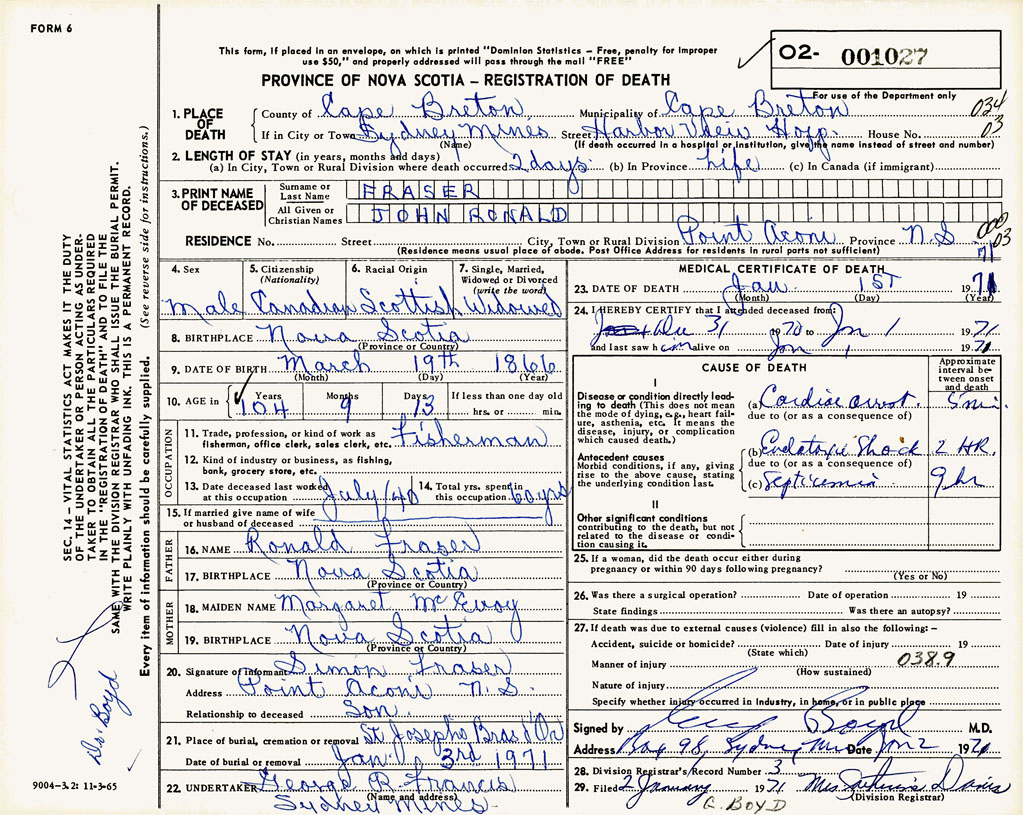 FORM 6
This form, if placed in an envelope, on which is printed "Dominion Statistics – Free, penalty for improper
use $50," and properly addressed will pass through the mail "FREE"
O2- 001027
PROVINCE OF NOVA SCOTIA – REGISTRATION OF DEATH
For use of the Department only
034
03
1. PLACE OF DEATH
County of Cape Breton Municipality of Cape Breton
If in City or Town Sydney Mines Street Harbor View Hosp. House No.
(Name) (If death occurred in a hospital or institution, give the name instead of street and number)
2. LENGTH OF STAY (in years, months and days)
(a) In City, Town or Rural Division where death occurred 2 days (b) In Province Life (c) In Canada (if immigrant)
3. PRINT NAME OF DECEASED
Surname or Last Name FRASER
All Given or Christian Names JOHN RONALD
RESIDENCE No. Street City, Town or Rural Division Point Aconi Province N.S
(Residence means usual place of abode. Post Office Address for residents in rural parts not sufficient)
03
71
4. Sex
Male
5. Citizenship (Nationality)
Canadian
6. Racial Origin
Scottish
7. Single, Married, Widowed or Divorced (write the word)
Widowed
8. BIRTHPLACE Nova Scotia
(Province or Country)
9. DATE OF BIRTH March 19th 1866
(Month) (Day) (Year)
10. AGE in Years 104 Months 9 Days 13 If less than one day old
hrs. or min.
OCCUPATION
11. Trade, profession, or kind of work as Fisherman
fisherman, office clerk, sales clerk, etc.
12. Kind of industry or business, as fishing,
bank, grocery store, etc.
13. Date deceased last worked at this occupation July/40
14. Total yrs. spent in this occupation 60 yrs
15. If married give name of wife
or husband of deceased
FATHER
16. NAME Ronald Fraser
17. BIRTHPLACE Nova Scotia
(Province or Country)
MOTHER
18. MAIDEN NAME Margaret McEvoy
19. BIRTHPLACE Nova Scotia
(Province or Country)
20. Signature of informant Simon Fraser
Address Point Aconi N.S.
Relationship to deceased Son
21. Place of burial, cremation or removal St Josephs Bras d'Or
Date of burial or removal Jan 3rd 1971
22. UNDERTAKER George R. Francis
(Name and address)
Sydney Mines
MEDICAL CERTIFICATE OF DEATH
23. DATE OF DEATH Jan 1ST 1971
(Month) (Day) (Year)
24. I HEREBY CERTIFY that I attended deceased from:
31 1970 to Jan 1 1971
and last saw him alive on Jan 1 1971
CAUSE OF DEATH
Approximate interval between onset and death
I
Disease or condition directly leading to death (This does not mean the mode of dying, e.g., heart failure, asthenia, etc. It means the disease, injury, or complication which caused death.)
(a) Cardiac arrest. 5 min.
due to (or as a consequence of)
Antecedent causes
Morbid conditions, if any, giving rise to the above cause, stating the underlying condition last.
(b) Endotoxic Shock 2 HR.
due to (or as a consequence of)
(c) Septicemia 9 hr
II
Other significant conditions
contributing to the death, but not related to the disease or condition causing it.
25. If a woman, did the death occur either during
pregnancy or within 90 days following pregnancy?
(Yes or No)
26. Was there a surgical operation? Date of operation 19
State findings Was there an autopsy?
27. If death was due to external causes (violence) fill in also the following: –
Accident, suicide or homicide? Date of injury 19
(State which)
038.9
Manner of injury
(How sustained)
Nature of injury
Specify whether injury occurred in industry, in home, or in public place
Signed by Boyd M.D.
Address Box 98, Sydney Mines Date Jan 2 1971
28. Division Registrar's Record Number 3
29. Filed 2 January 1971 Mrs Davis
(Division Registrar)
G. BOYD
SEC. 14 – VITAL STATISTICS ACT MAKES IT THE DUTY
OF THE UNDERTAKER OR PERSON ACTING AS UNDER-
TAKER TO OBTAIN ALL THE PARTICULARS REQUIRED
IN THE "REGISTRATION OF DEATH" AND TO FILE THE
SAME WITH THE DIVISION REGISTRAR WHO SHALL ISSUE THE BURIAL PERMIT.
WRITE PLAINLY WITH UNFADING INK. THIS IS A PERMANENT RECORD.
Every item of information should be carefully supplied. (See reverse side for instructions.)
Dr. Boyd
9004–3.2: 11-3-65